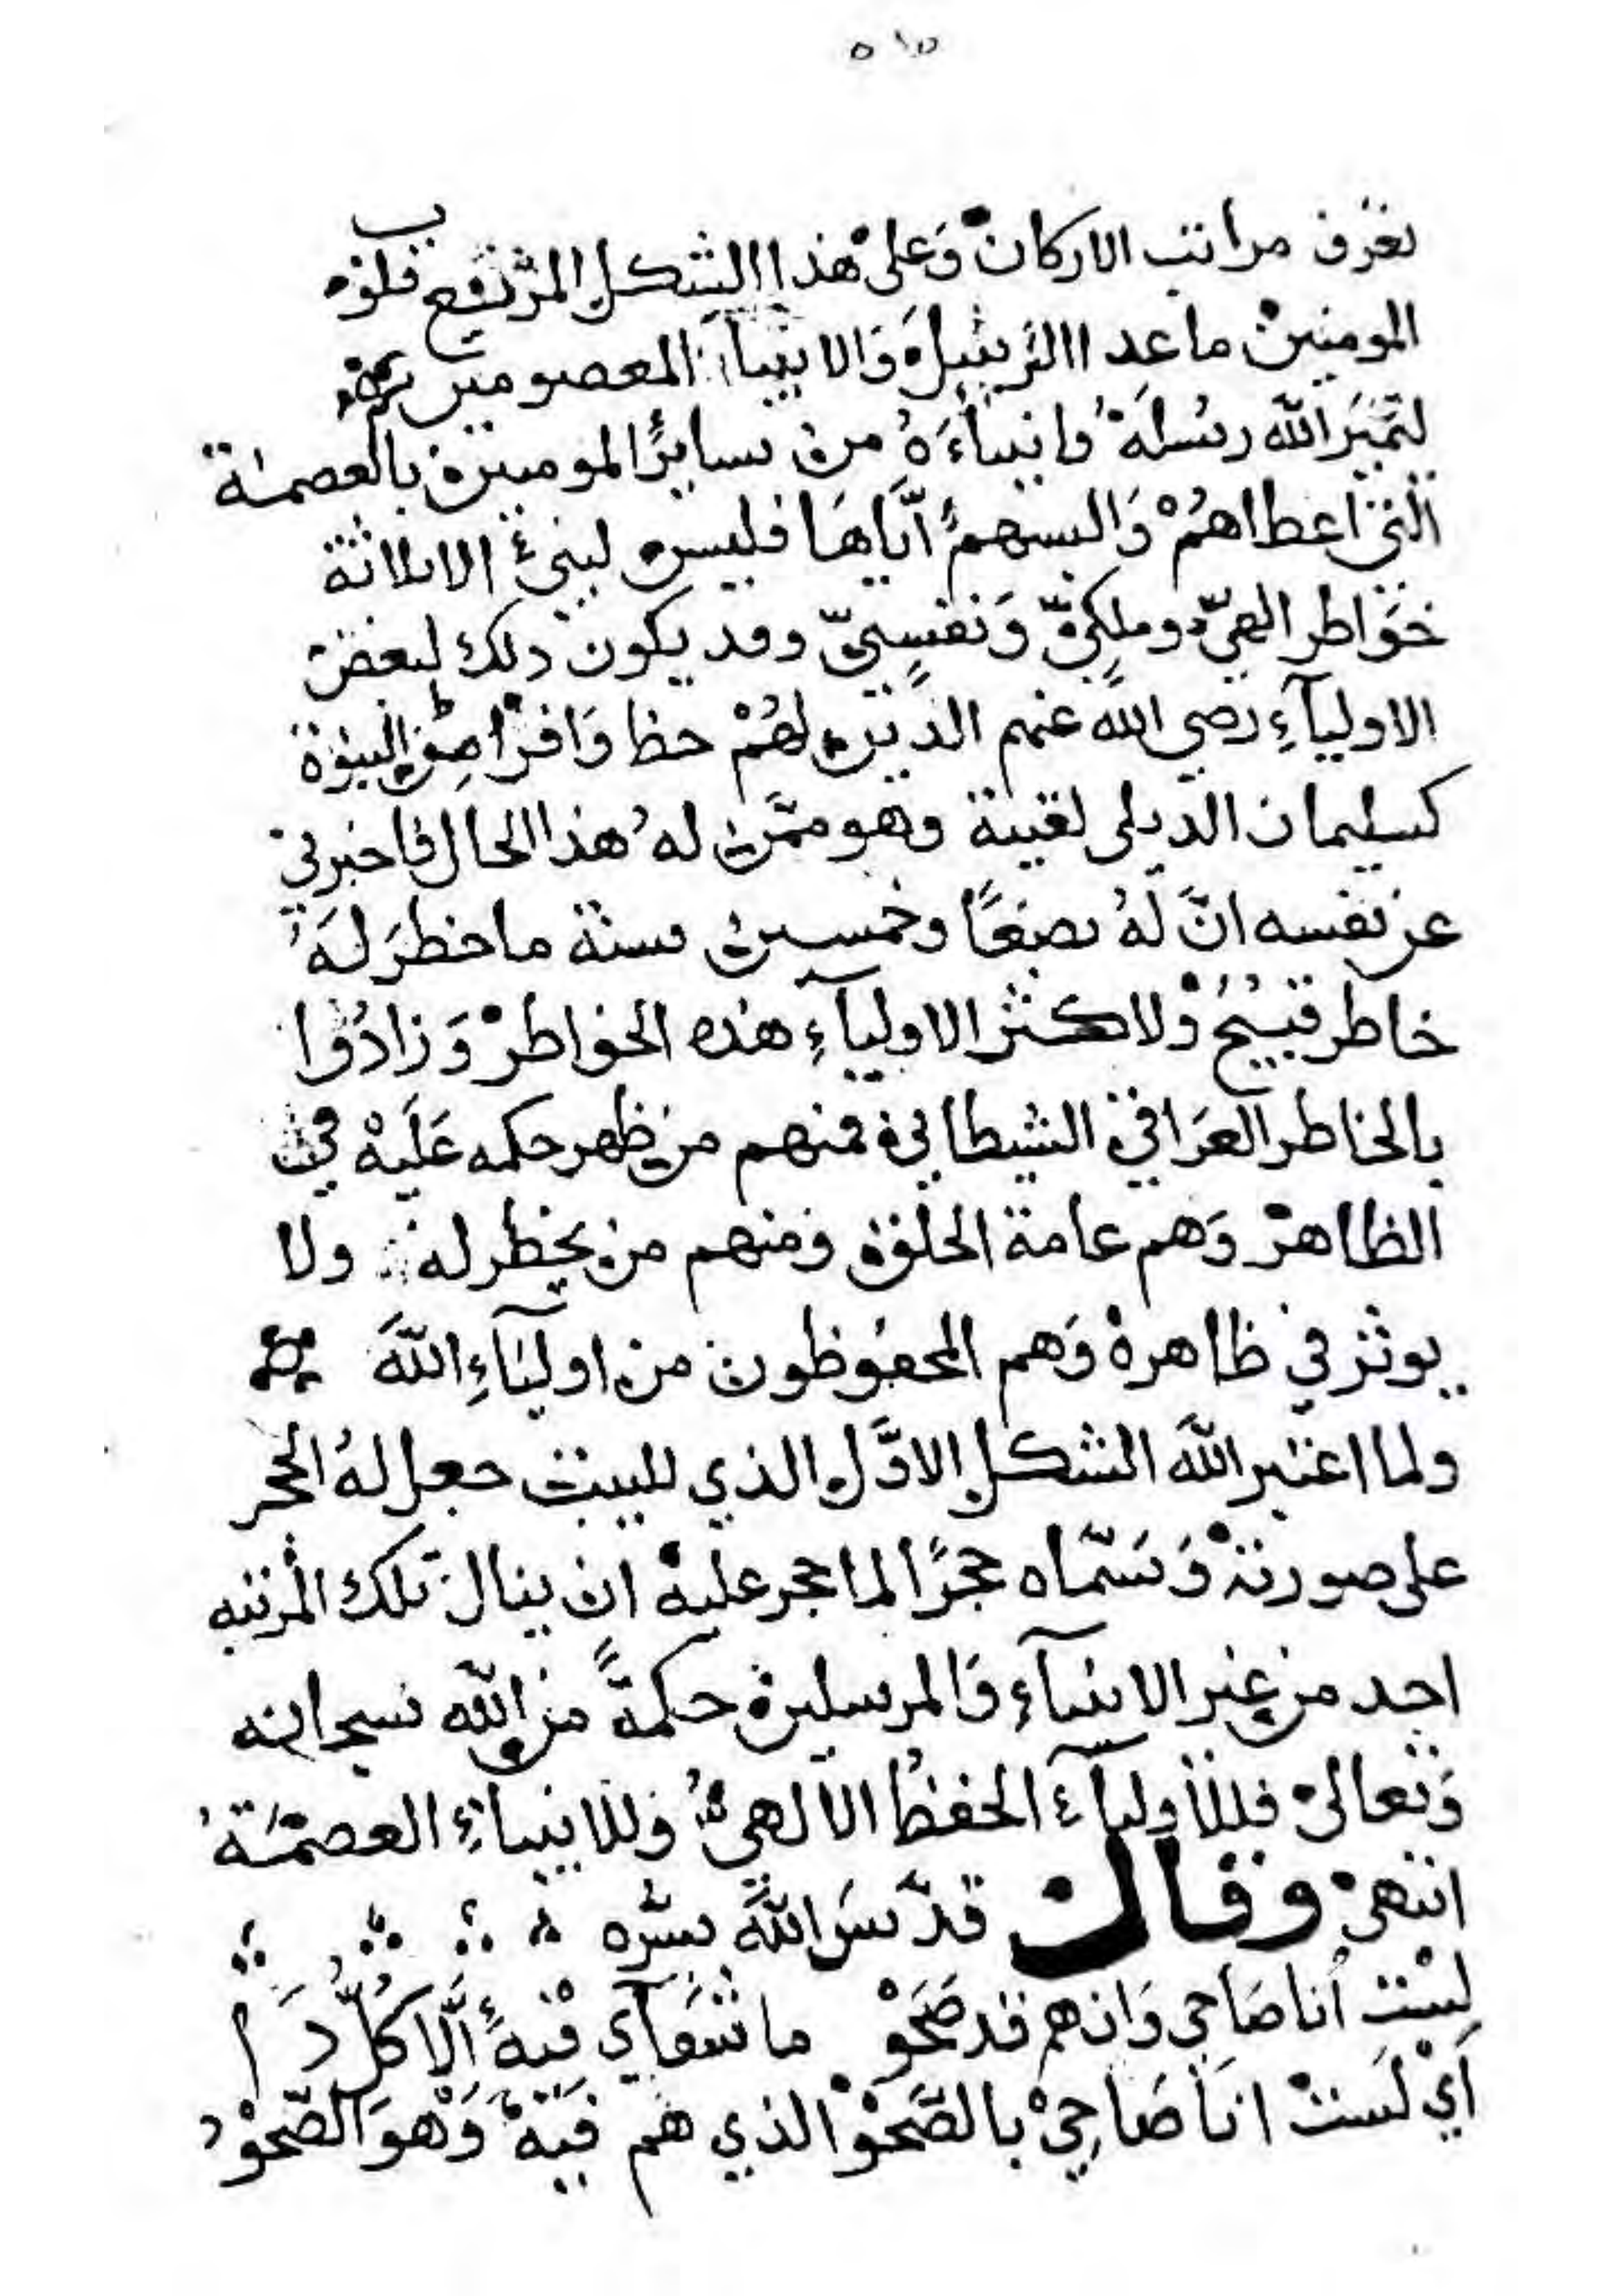 ٥١٥
تعرف مراتب الاركان وَعلى هذا الشكل المرتفع قلوب
المومنين ما عدا الرسل وَالانبياء المعصومين
لتميّز الله رسُلهُ وانبياءَهُ من ساير المومنين بالعصمة
التي اعطاهمْ وَالبسهم اِيَّاهَا فليس لنبيّ الا ثلاثة
خَواطر الهيّ وملكيّ وَنفسيّ وقد يكون ذلك لبعض
الاوليآءِ رضي الله عنهم الذين لهُمْ حظا وَافرا من النبوّة
كسليمان الدبلى لقيته وهو ممّن لهُ هذا الحال فاخبرني
عن نفسه انَّ لهُ بضعًا وخمسين سنة ما خطرَ لهُ
خاطر قبيْحُ ولاكثر الاوليآءِ هذه الخواطرْ وَزادُوا
بالخاطر العرَاقي الشيطاني فمنهم من ظهر حكمه عَليْه في
الظاهرْ وَهم عامة الخلق وَمنهم من يخطر له ولا
يوثر في ظاهرهْ وَهم المحفوظون من اوليَآءِ اللهَ
ولما اعتبر اللهَ الشكل الاوَّل الذي للبيت جعل لهُ الحجر
على صورته وَسَمَّاه حجرًا لما حجر عليهْ ان ينال تلك المرتبه
احد من غير الانبيآءِ وَالمرسلين حكمةً من الله سبحانه
وَتعالىْ فللأوليآء الحفظُ الالهيُّ وَللانبياءِ العصمَةُ
انتهىْ وَقال قدّسَ اللهَ سرّه
لسْت أنا صَاحي وَان هم قد صَحَوْ ما شوَآي فيْه اَلّا كُلّ دَا
أَيْ لسَتْ انَا صَاحِيْ بالصَّحْوْ الذي هم فيَهْ وَهْوَ الصّحوْ